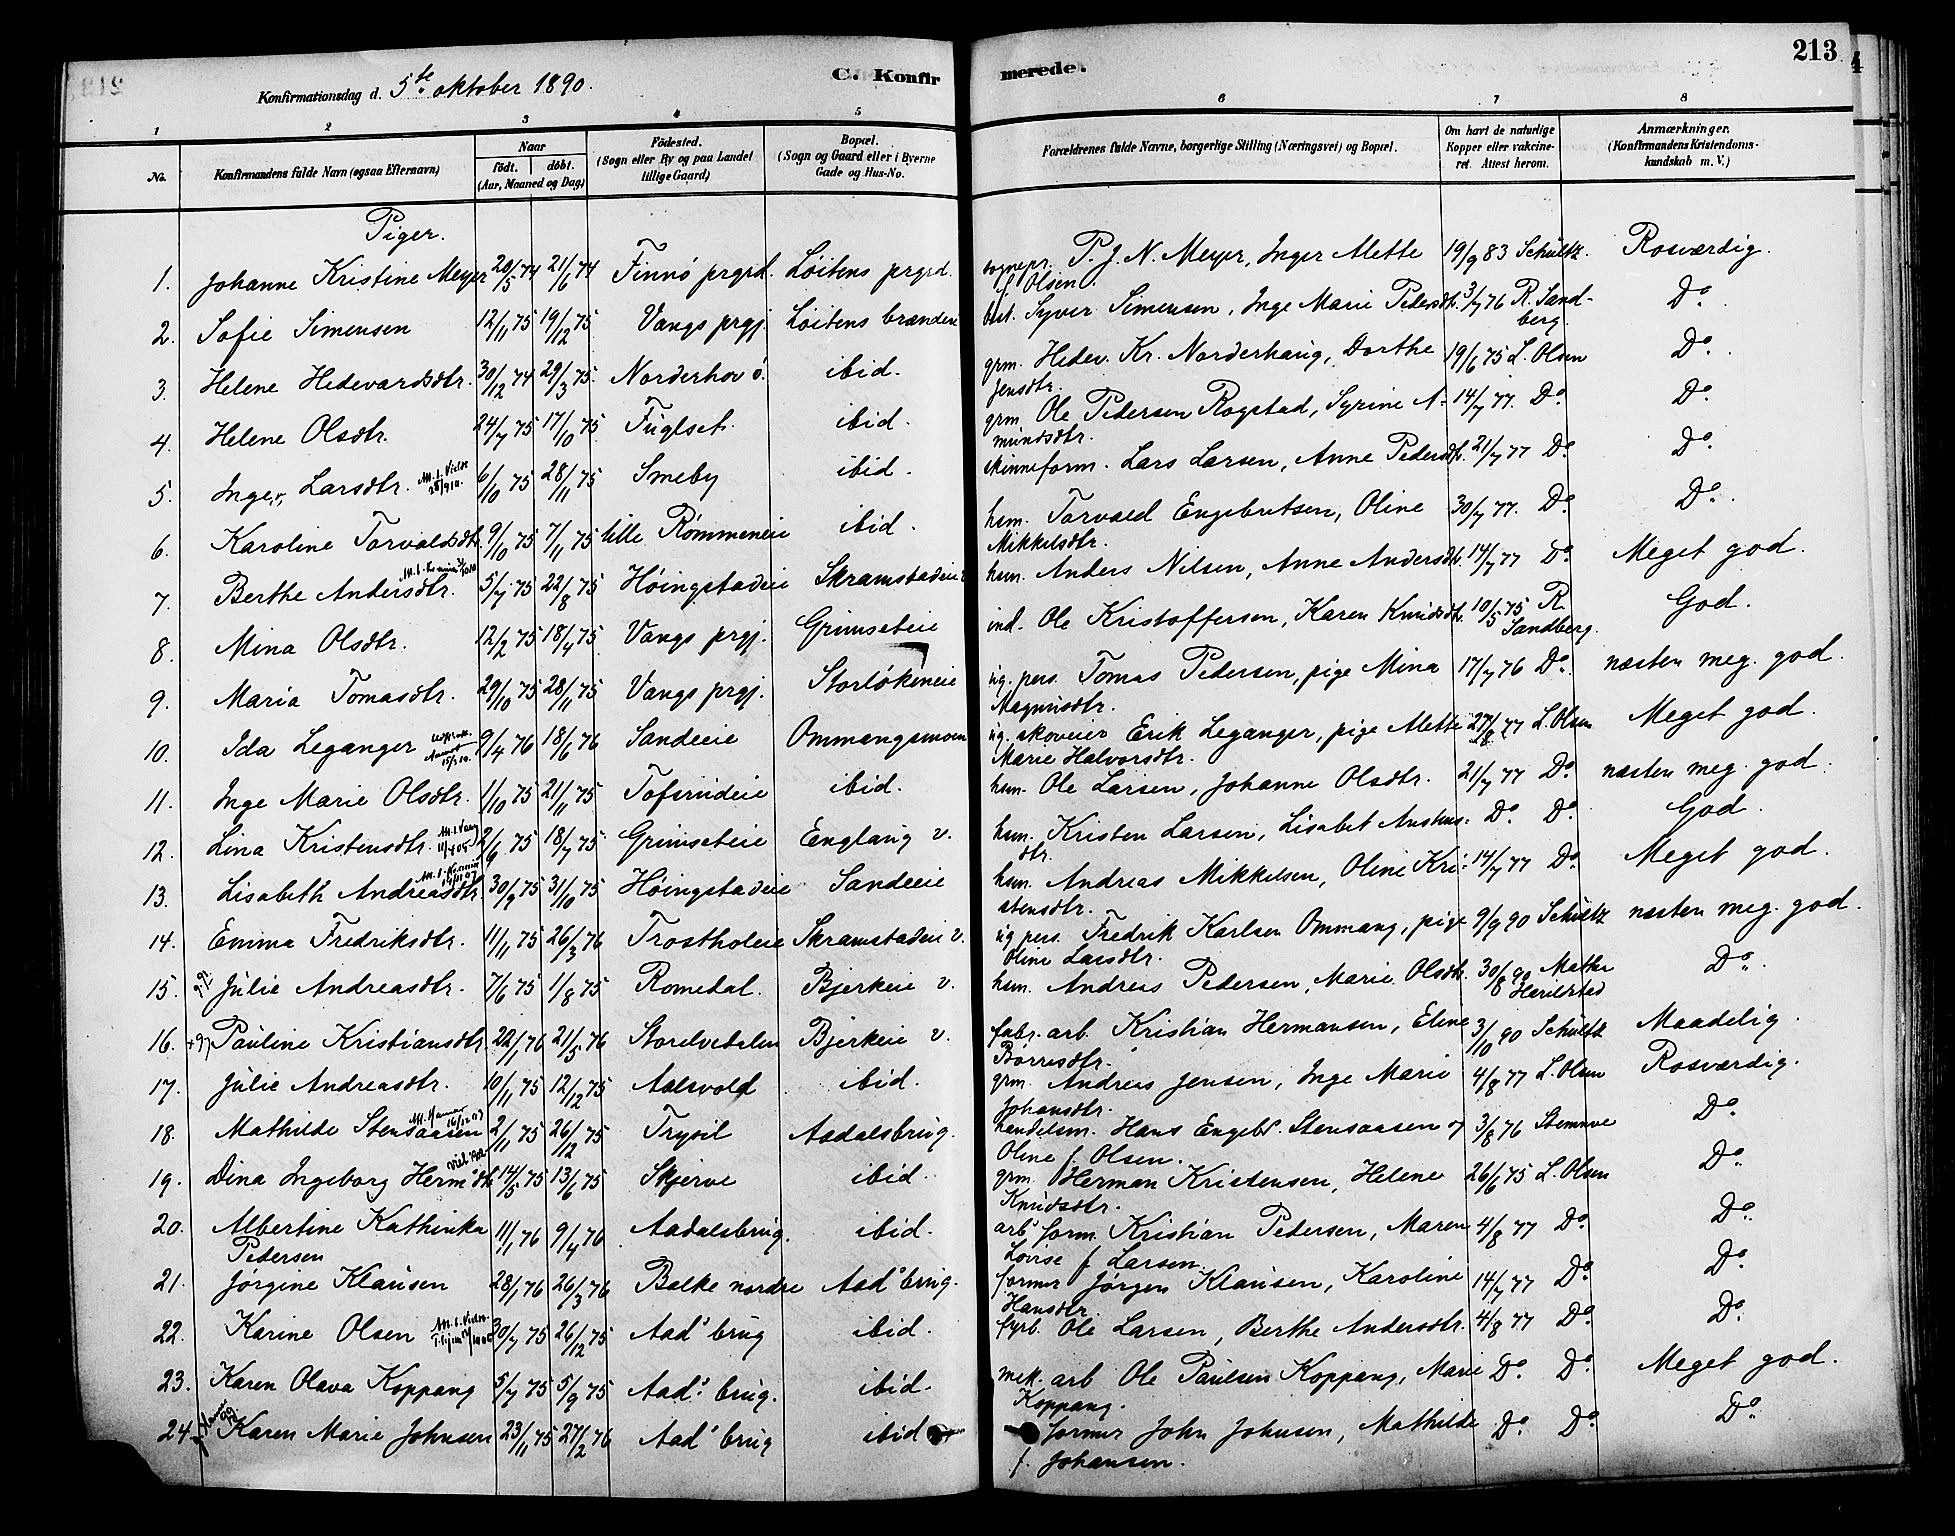 213
Konfirmationsdag d. 5te oktober 1890.
C. Konfirmerede.
1 2 3 4 5 6 7 8
No. Konfirmandens fulde Navn (ogsaa Efternavn) Naar født. døbt. (Aar, Maaned og Dag) Fødested. (Sogn eller By og paa Landet tillige Gaard) Bopæl. (Sogn og Gaard eller i Byerne Gade og Hus-No. Forældrenes fulde Navne, borgerlige Stilling (Næringsvei) og Bopæl. Om havt de naturlige Kopper eller vakcineret. Attest herom. Anmærkninger. (Konfirmandens Kristendomskundskab m. V.)
Piger.
1. Johanne Kristine Meyer 20/5 74 21/6 74 Finnø prgrd. Løitens prgrd. sognepr. P. J. N. Meyer, Inger Alette f. Olsen 19/9 83 Schultz. Rosværdig.
2. Sofie Simensen 12/11 75 19/12 75 Vangs prgj. Løitens brænderi best. Syver Simensen, Inge Marie Pedersdtr. 3/7 76 R. Sandberg. Do.
3. Helene Hedevardsdtr. 30/12 74 29/3 75. Norderhov ø. ibid. grm. Hedev. Kr. Norderhaug, Dorthe Jensdtr. 19/6 75 L. Olsen Do.
4. Helene Olsdtr. 24/7 75 17/10 75 Fuglset. ibid. grm. Ole Pedersen Rogstad, Syrine Amundsdtr. 14/7 77. Do. Do.
5. Inger Larsdtr. 6/10 75 28/11 75 Smeby ibid. skinneform. Lars Larsen, Anne Pedersdtr. 21/7 77 Do. Do.
6. Karoline Torvaldsdtr. 9/10 75 7/11 75 lille Rømmeneie ibid. hsm. Torvald Engebretsen, Oline Mikkelsdtr. 30/7 77. Do. Do.
7. Berthe Andersdtr. 5/7 75 22/8 75 Høingstadeie Skramstadeie hsm. Anders Nilsen, Anne Andersdtr. 14/7 77 Do. Meget god.
8. Mina Olsdtr. 12/2 75 18/4 75 Vangs prgj. Grimseteie ind. Ole Kristoffersen, Karen Knudsdtr. 10/5 75 R. Sandberg. God.
9. Maria Tomasdtr. 29/10 75 28/11 75 Vangs prgj. Storløkeneie ug. pers. Tomas Pedersen, pige Mina Magnusdtr. 17/7 76 Do. næsten meg. god.
10. Ida Leganger 9/4 76 18/6 76 Sandeeie Ommangsmoen ug. skoveier Erik Leganger, pige Alette Marie Halvorsdtr. 27/8 77 L. Olsen Meget god.
11. Inge Marie Olsdtr. 1/10 75 21/11 75 Tofsrudeie ibid. hsm. Ole Larsen, Johanne Olsdtr. 21/7 77 Do. næsten meg. god.
12. Lina Kristensdtr. 2/6 75 18/7 75 Grimseteie Englaug v. hsm. Kristen Larsen, Lisabet Do. Do. God.
13. Lisabeth Andreasdtr. 30/9 75 31/10 75 Høingstadeie Sandeeie hsm. Andreas Mikkelsen, Oline Kristensdtr. 14/7 77 Do. Meget god.
14. Emma Fredriksdtr. 11/11 75 26/3 76 Trostholeie Skramstadeie v. ug pers. Fredrik Karlsen Ommang, pige Oline Larsdtr. 9/9 90 Schultz næsten meg. god.
15. Julie Andreasdtr. 7/6 75 1/8 75 Romedal. Bjerkeie v. hsm. Andreas Pedersen, Marie Olsdtr. 30/8 90 Mathea Do.
16. Pauline Kristiansdtr. 22/1 76 21/5 76 Storelvedalen Bjerkeie v. fabr. arb. Kristian Hermansen, Eline Børresdtr. 3/10 90 Schultz Maadelig.
17. Julie Andreasdtr. 10/11 75 12/12 75 Aalsvold ibid. grm. Andreas Jensen, Inge Marie Johansdtr. 4/8 77 L. Olsen Rosværdig.
18. Mathilde Stensaasen 2/11 75 26/12 75 Trysil Aadalsbrug. handelsm. Hans Engebr. Stensaasen og Oline f. Olsen. 3/8 76 Do.
19. Dina Ingeborg Herm.dtr. 14/5 75 13/6 75 Skjerve ibid. grm. Herman Kristensen, Helene Knudsdtr. 26/6 75 L. Olsen Do.
20. Albertine Kathinka Pedersen 11/1 76 9/4 76 Aadalsbrug. ibid. arb. form. Kristian Pedersen, Maren Lovise f. Larsen 4/8 77 Do. Do.
21. Jørgine Klausen 28/1 76 26/3 76 Balke nordre Aads brug. former Jørgen Klausen, Karoline Hansdtr. 14/7 77 Do. Do.
22. Karine Olsen 30/7 75 26/12 75 Aads brug ibid. fyrb. Ole Larsen, Berthe Andersdtr. 4/8 77 Do. Do.
23. Karen Olava Koppang 5/7 75 5/9 75 Aads brug. ibid. mek. arb Ole Paulsen Koppang, Marie Koppang. Do. Do. Meget god.
24. Karen Marie Johnsen 23/11 75 27/2 76 Aads brug ibid former John Johnsen, Mathilde f. Johansen. Do. Do. Do.